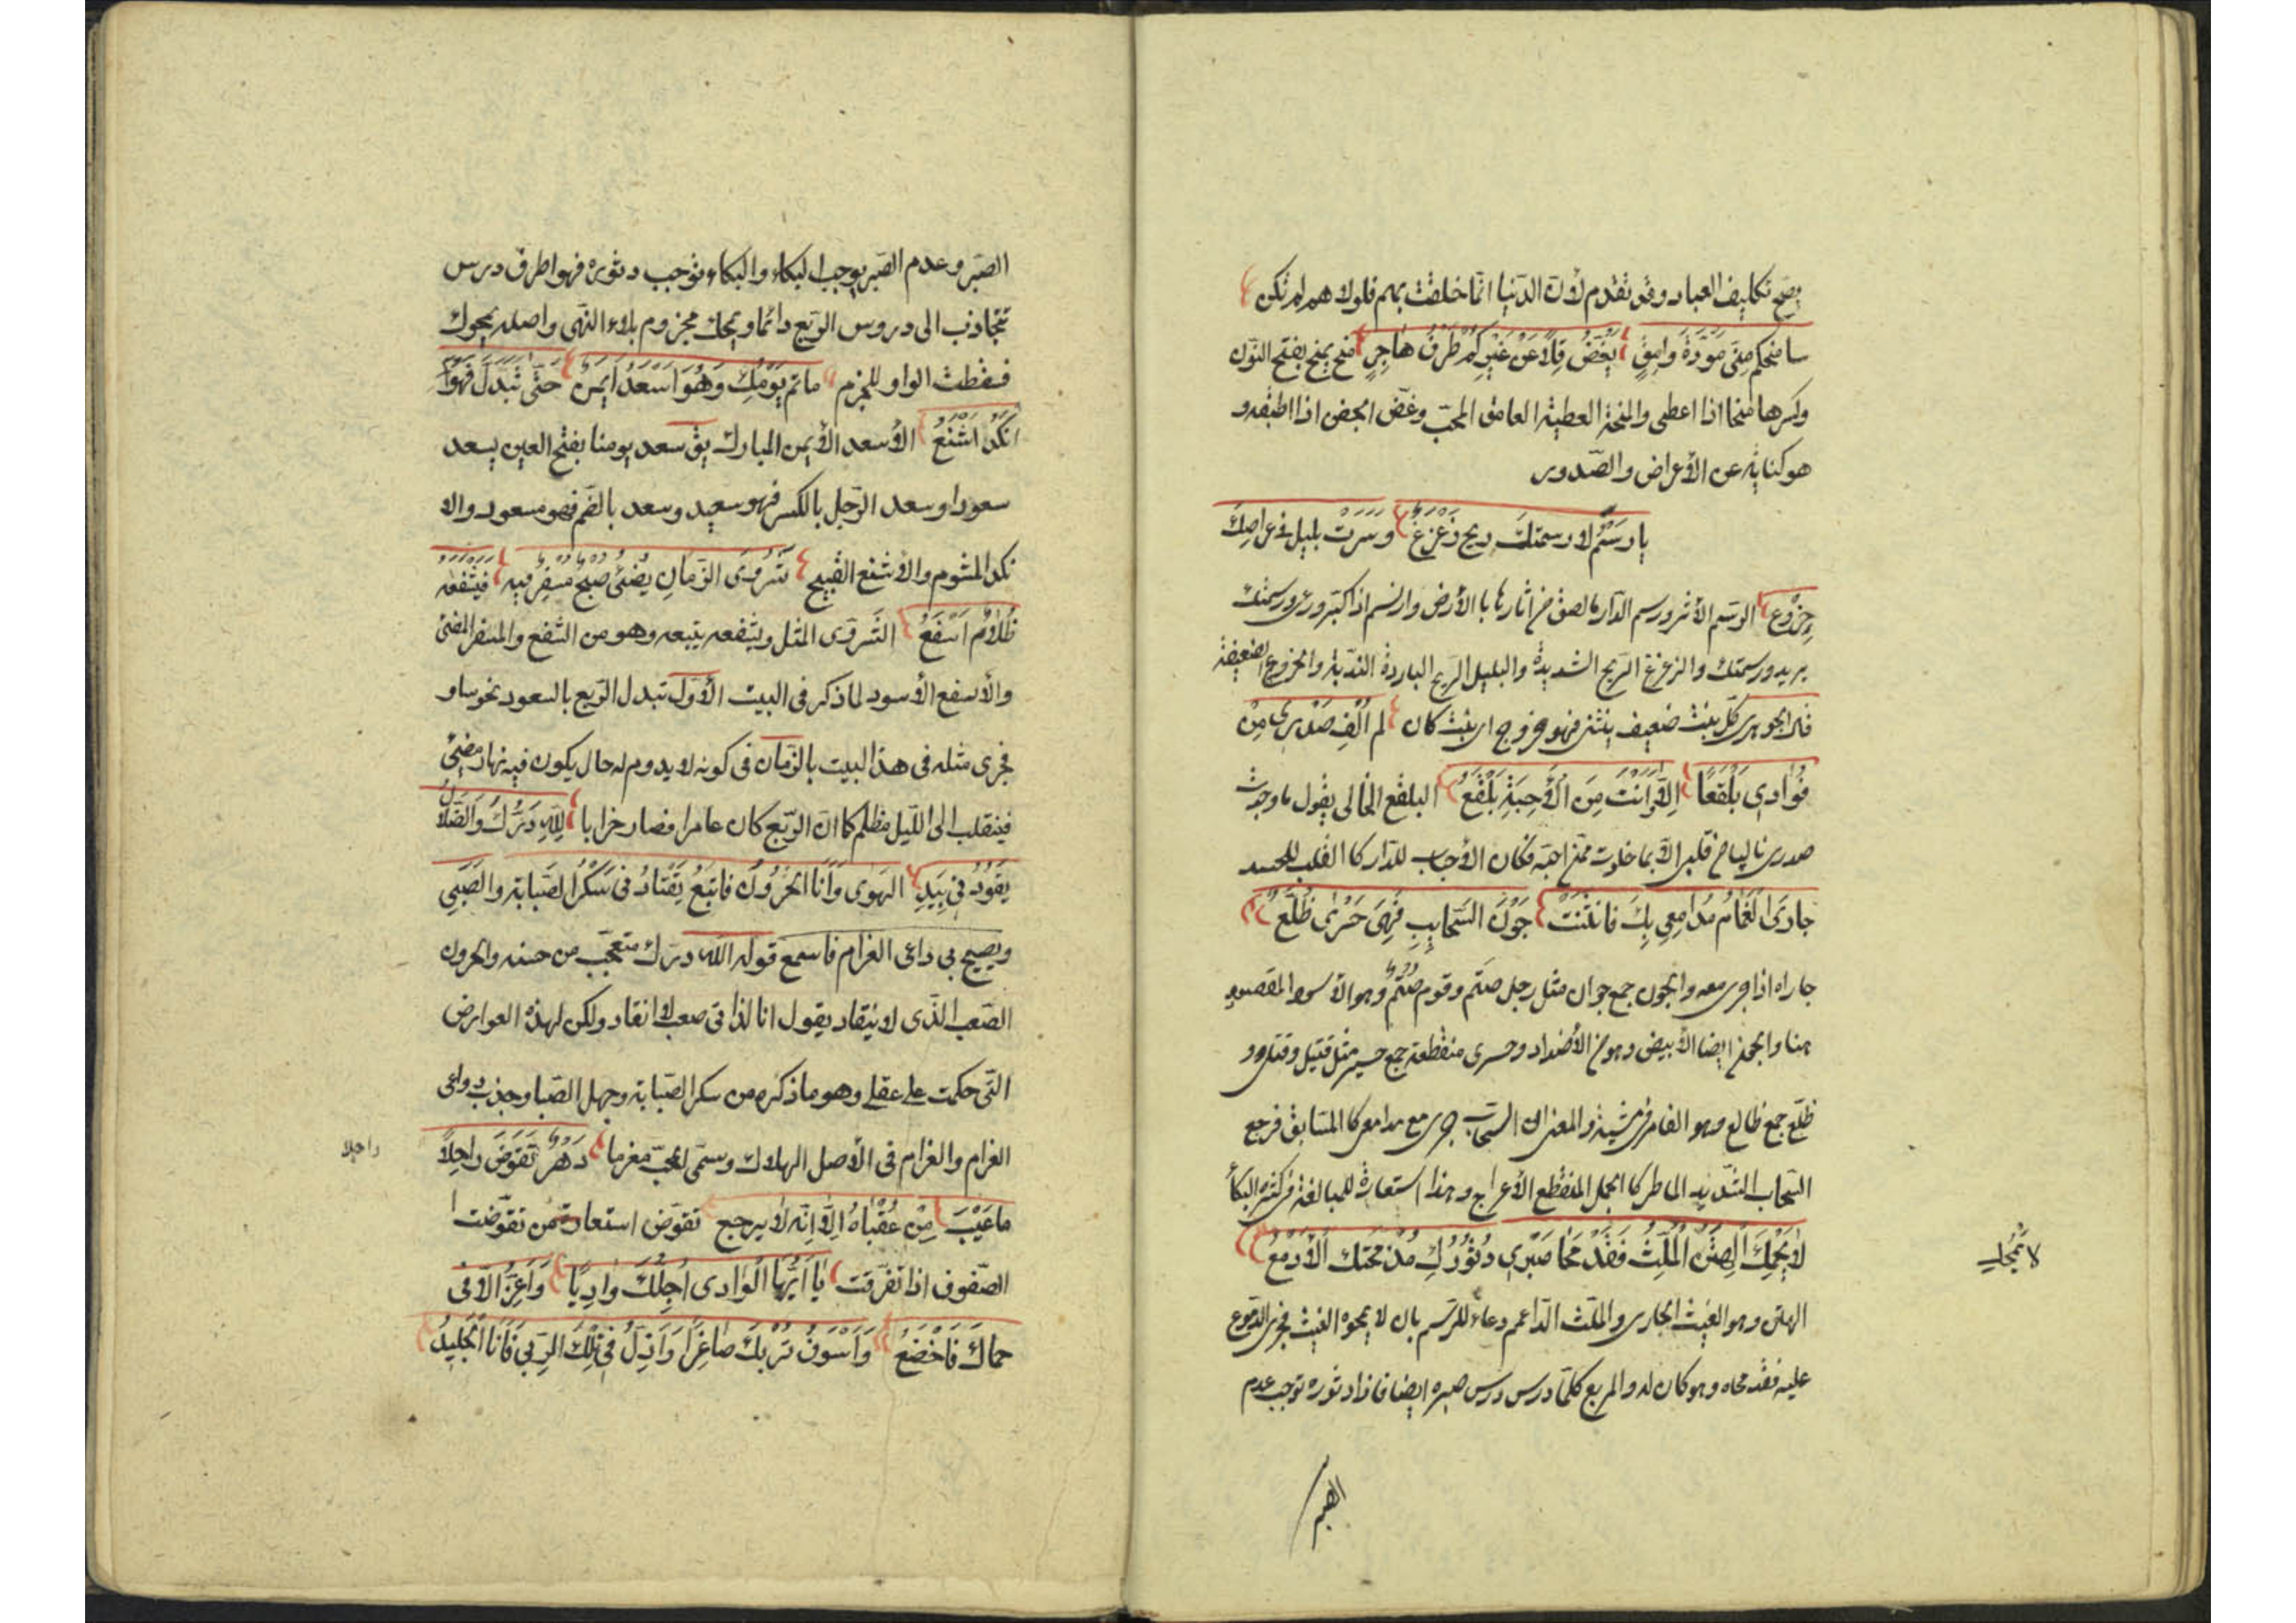 يصح تكليف العباد وقد تقدم لأن الدنيا انما خلقت بهم فلولا هم لم تكن
سامنحكم منى مَوَدَّةَ وامِقٍ يَغُضُّ قِلًا عَنْ غَيْرِكُمْ طَرْفُ هَاجِرٍ منح يمنح بفتح النون
وكسرها منحا اذا اعطى والمنحة العطية العامق المحبّ وغض اخفض اذا اطبقه و
هو كناية عن الأعراض والصّدور
يا رَسْمُ لا رسمتك ريح زَعْزَعٌ وسَرَتْ بليل في عراصِكَ
خِرْوَع الرسم الأثر ورسم الدار ما لصق من اثارها با الأرض وارتسم اذا كبّر ورعى ورسمتك
يريد ورسمتك والزعزع الريح الشديدة والبليل الريح الباردة النديّة والخروع الضعيفة
قال الجوهرى كلّ نبت ضعيف ينثنى فهو خروع اى نبت كان لم اُلْفِ صَدْرِى مِنْ
فُوَادِى بَلْقَعًا اِلّا وَاَنْتَ مِنَ الْأَحِبَّةِ بَلْقَعُ البلقع الخالى يقول ما وجدت
صدرى خاليا من قلبى الّا بما خلوت ممّن احبّه فكان الأحباب للدار كا القلب للجسد
جارَى الْغَمامُ مَدامِعِي بِكَ فانْثَنَتْ جَوْنُ السَّحايِبِ فَهِىَ حَسْرٰى ظُلَّعُ
جاراه اذا جرى معه والجون جمع جوان مثل رجل صَتَم وقوم صُتُم وهو الأسود المقصود
هنا والجون ايضا الأبيض وهو من الأضداد وحسرى منقطعة جمع حسير مثل قتيل وقتلى و
ظلّع جمع ظالع وهو الغامز فى مشيته والمعنى ان السحاب جرى مع مدامعى كا المتسابق فرجع
السحاب الشديد الماطر كا الجمل المنقطع الأعرج وهذا استعارة للمبالغة فى كثرة البكأ
لاٰ يَمْحُكَ الْهَتِنُ الْمُلِثُّ فَقَدْ مَحَا صَبْرِي دُثُوُرُكَ مُذْ مَحَتك الْأَدْمُعُ
لا يَمْحُكِ
الهتن وهو الغيث الجارى والملث الدائم دعاء للرسم بان لا يمحوه الغيث فجرى الدموع
عليه فقد محاه وهو كان له والربع كلمّا درس درس صبره ايضا فاذا دثوره توجب عدم
الصبر
الصّبر وعدم الصّبر يوجب البكاء والبكاء يوجب دثوره فهو اطرق درس
تتجاذب الى دروس الرّبع دائما ويمحك مجزوم بلاء النهى واصله يمحوك
فسقطت الواو للجزم ما تم يَوْمُكِ وَهُوَ اَسْعَدُ اَيْمَنٌ حَتّىٰ تَبَدَّلَ فَهْوَ
اَنْكَدُ اَشْنَعُ الأسعد الأيمن المبارك يق سعد يومنا بفتح العين يسعد
سعودا وسعد الرّجل بالكسر فهو سعيد وسعد بالضم فهو مسعود والا
نكد المشوم والأشنع القبيح شَرْوَى الزّمانِ يُضْئُ صُبْحٌ مُسْفِرٌ فيهِ فيَشْفَعُه
ظَلامٌ اَسْفَعُ الشّروى المثل ويشفعه يتبعه وهو من الشّفع والمسفر المضئ
والأسفع الأسود لما ذكر فى البيت الأوّل تبدل الرّبع بالسعود نحوسا و
فجرى مثله فى هذا البيت بالزّمان فى كونه لا يدوم له حال يكون فيه نهار مضئ
فينقلب الى اللّيل مظلم كما انّ الرّبع كان عامرا فصار خرابا لِلّهِ دَرُّكَ وَالضَّلالُ
يَقُودُ نِي بِيَدِ الهَوى وَأنَا الحَرُونُ فاتَبَعُ يَقْتَادُ نِى سَكْرُ الصَّبَابَةِ والصَّبِى
ويصيح بى داعى الغرام فاسمع قوله الله درّك متعجّب من حسنه والحرون
الصّعب الّذى لا ينقاد يقول انا لذاتى صعب لا انقاد ولكن لهذه العوارض
الّتى حكمت على عقلى وهو ما ذكره من سكر الصّبابة وجهل الصّبا وجذب دواعى
الغرام والغرام فى الأصل الهلاك وسمّى لحبّ مغرما دَهْرٌ تَقَوَّضَ راحِلاً
راحلا
ما عِيْبَ مِنْ عُقْبَاهُ اِلّا اِنّه لا يرجع تقوّض استعارة من تقوّضت ا
الصّفوف اذا تفرّقت يَا اَيُّها الوادى اُجِلُّكَ وادِيًا وَاَعِزُّ الّا فى
حماكَ فَاَخْضَعُ وَاَسُوفُ تُرْبَكَ صَاغِرًا وَاَذِلُّ فى تِلْكَ الرّبى فَاَنَا الجَلِيدُ